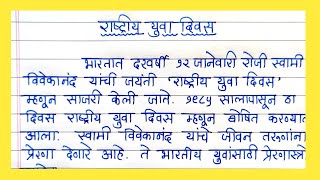 राष्ट्रीय युवा दिवस
भारतात दरवर्षी १२ जानेवारी रोजी स्वामी
विवेकानंद यांची जयंती 'राष्ट्रीय युवा दिवस'
म्हणून साजरी केली जाते. १९८५ सालापासून हा
दिवस राष्ट्रीय युवा दिवस म्हणून घोषित करण्यात
आला. स्वामी विवेकानंद यांचे जीवन तरुणांना
प्रेरणा देणारे आहे. ते भारतीय युवांसाठी प्रेरणास्त्रो